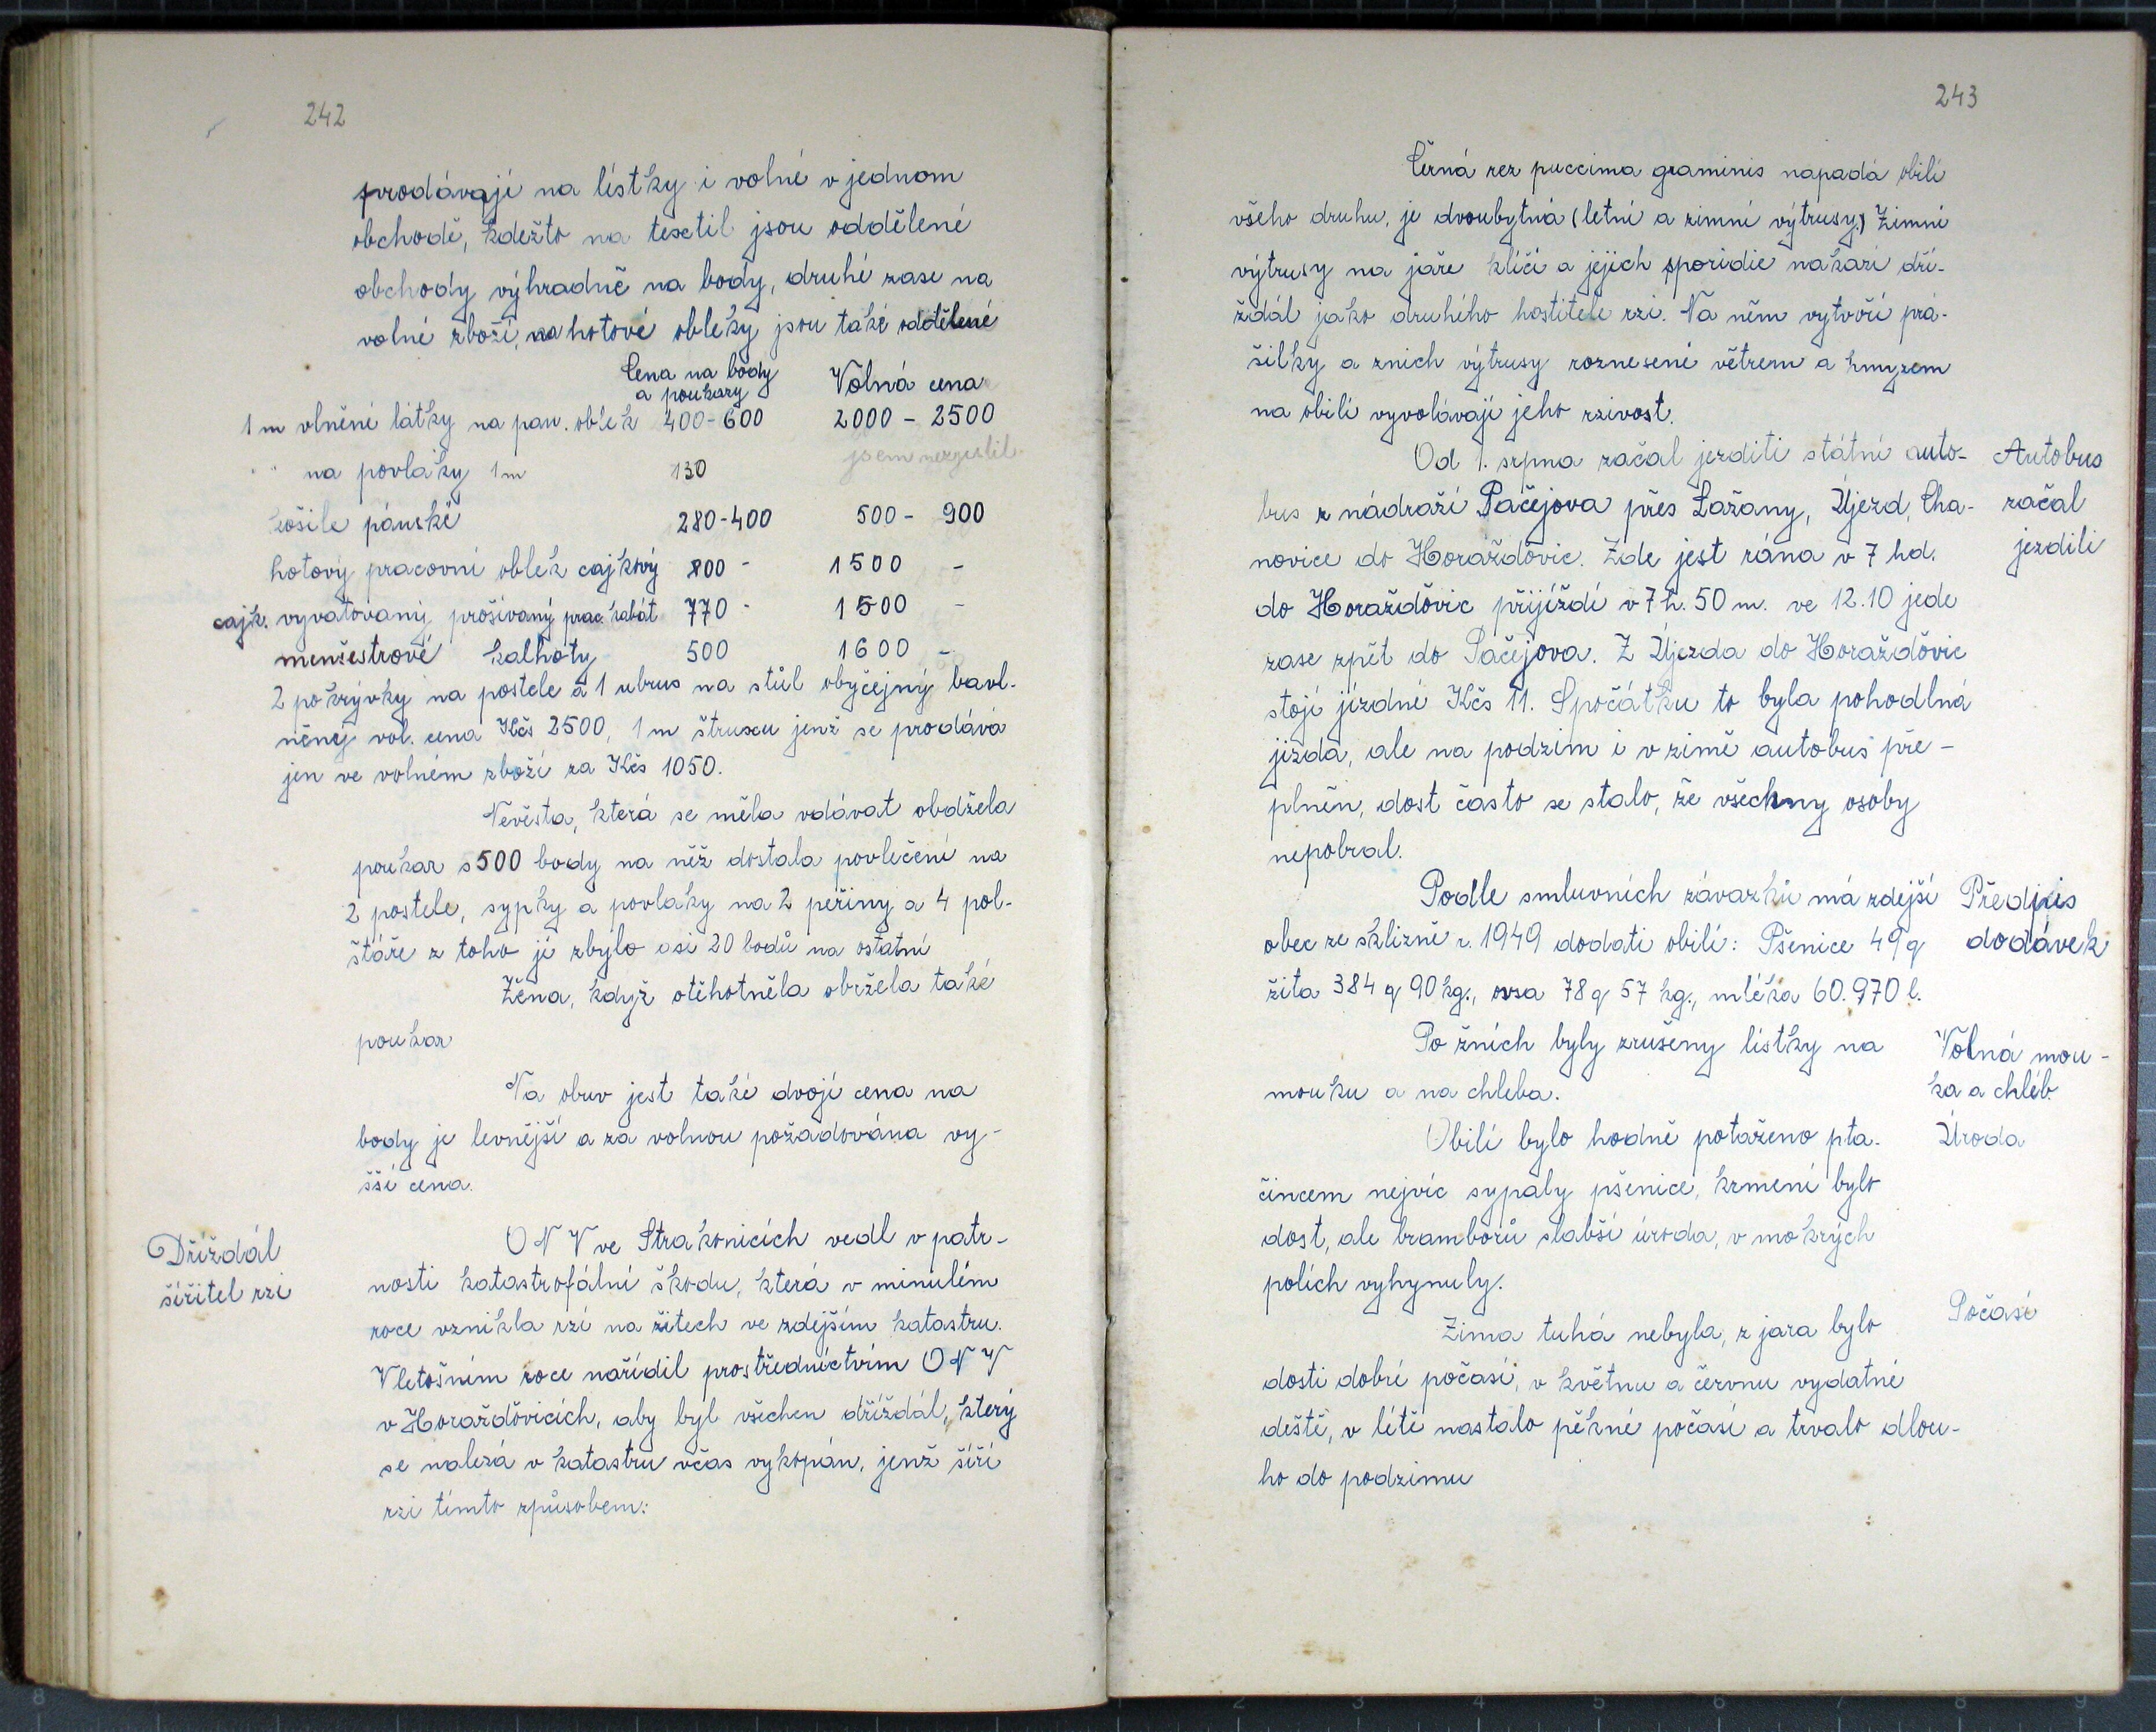 242
prodávají na lístky i volné v jednom
obchodě, kdežto na textil jsou oddělené
obchody výhradně na body, druhé zase na
volné zboží, na hotové obleky jsou také oddělené
Cena na body
a poukazy
Volná cena
1 m vlněné látky na pan. oblek 400-600 2000 - 2500
" na povlaky 1 m 130 jsem nezjistil
košile pánské 280-400 500 - 900
hotový pracovní oblek cajkový 800 - 1500 -
cajk. vyvatovaný prošívaný prac. kabát 770 - 1500 -
menšestrové kalhoty 500 1600 -
2 pokrývky na postele a 1 ubrus na stůl obyčejný bavl-
něný vol. cena Kčs 2500, 1 m štruxu jenž se prodává
jen ve volném zboží za Kčs 1050.
Nevěsta, která se měla vdávat obdžela
poukaz s 500 body na něž dostala povlečení na
2 postele, sypky a povlaky na 2 peřiny a 4 pol-
štáře z toho jí zbylo asi 20 bodů na ostatní
Žena, když otěhotněla obržela také
poukaz
Na obuv jest také dvojí cena na
body je levnější a za volnou požadována vy-
šší cena.
Dřížďál
šířitel rzi
ONV ve Strakonicích vedl v patr-
nosti katastrofální škodu, která v minulém
roce vznikla rzí na žitech ve zdejším katastru.
V letošním roce nařídil prostřednictvím ONV
v Horažďovicích, aby byl všechen dřížďál, který
se nalezá v katastru včas vykopán, jenž šíří
rzi tímto způsobem:
243
Černá rez puccima graminis napadá obilí
všeho druhu, je dvoubytná (letní a zimní výtrusy.) Zimní
výtrusy na jaře klíčí a jejich sporidie nakazí dří-
žďál jako druhého hostitele rzi. Na něm vytvoří prá-
šilky a z nich výtrusy roznesené větrem a hmyzem
na obilí vyvolávají jeho rzivost.
Od 1. srpna začal jezditi státní auto-
bus z nádraží Pačejova přes Zařany, Újezd, Cha-
novice do Horažďovic. Zde jest rána v 7 hd.
do Horažďovic přijíždí v 7 h. 50 m. ve 12.10 jede
zase zpět do Pačejova. Z Újezda do Horažďovic
stojí jízdné Kčs 11. Spočátku to byla pohodlná
jízda, ale na podzim i v zimě autobus pře-
plněn, dost často se stalo, že všechny osoby
nepobral.
Autobus
začal
jezdili
Podle smluvních závazků má zdejší
obec ze sklizně r. 1949 dodati obilí: Pšenice 49 q
žita 384 q 90 kg., ovsa 78 q 57 kg., mléka 60.970 l.
Předpis
dodávek
Po žních byly zrušeny lístky na
mouku a na chleba.
Volná mou-
ka a chléb
Obilí bylo hodně potaženo pta-
čincem nejvíc sypaly pšenice, krmení bylo
dost, ale bramborů slabší úroda, v mokrých
polích vyhynuly.
Úroda
Zima tuhá nebyla, z jara bylo
dosti dobré počasí, v květnu a červnu vydatné
deště, v létě nastalo pěkné počasí a trvalo dlou-
ho do podzimu
Počasí